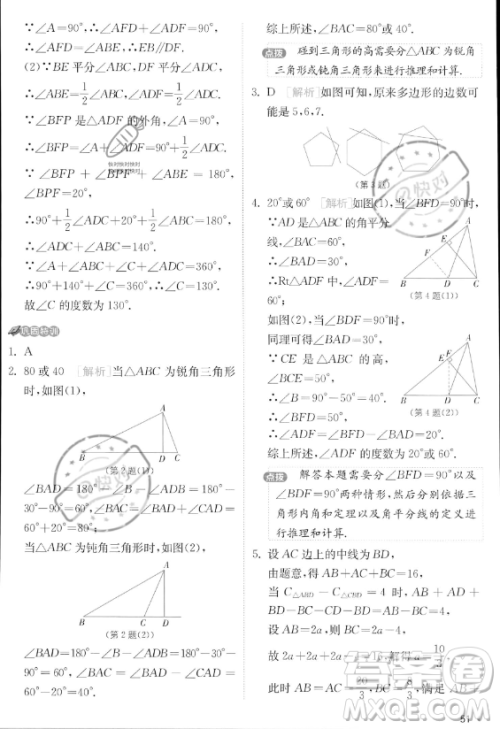 ∵∠A=90°,∴∠AFD+∠ADF=90°,
∴∠AFD=∠ABE,∴EB∥DF.
(2)∵BE平分∠ABC,DF平分∠ADC,
∴∠ABE=1/2∠ABC,∠ADF=1/2∠ADC.
∵∠BFP是△ADF的外角,∠A=90°,
∴∠BFP=∠A+∠ADF=90°+1/2∠ADC.
∵∠ABE+∠BFP+∠BPF=180°,
∠BPF=20°,
∴90°+1/2∠ADC+20°+1/2∠ABC=180°,
∴∠ADC+∠ABC=140°.
∵∠A+∠ABC+∠C+∠ADC=360°,
∴90°+140°+∠C=360°,∴∠C=130°.
故∠C的度数为130°.
1. A
2. 80或40 [解析]当△ABC为锐角三角形
时,如图(1),
A
B D C
(第2题(1))
∠BAD=180°-∠B-∠ADB=180°-
30°-90°=60°,
∴∠BAC=∠BAD+∠CAD=60°+20°=80°.
当△ABC为钝角三角形时,如图(2),
A
B C D
(第2题(2))
∠BAD=180°-∠B-∠ADB=180°-
30°-90°=60°,
∴∠BAC=∠BAD-∠CAD=60°-20°=40°.
综上所述,∠BAC=80°或40°.
点拨 碰到三角形的高需要分△ABC为锐角
三角形或钝角三角形来进行推理和计算.
3. D [解析]如图可知,原来多边形的边数可
能是5,6,7.
(第3题)
4. 20°或60° [解析]如图(1),当∠BFD=90°时,
∵AD是△ABC的角平分
线,∠BAC=60°,
∴∠BAD=30°,
∴Rt△ADF中,∠ADF=
60°;
(第4题(1))
如图(2),当∠BDF=90°时,
同理可得∠BAD=30°.
∵CE是△ABC的高,
∠BCE=50°,
∴∠BFD=∠BCE=50°,
(第4题(2))
∴∠ADF=∠BFD-∠BAD=20°.
综上所述,∠ADF的度数为20°或60°.
点拨 解答本题需要分∠BFD=90°以及
∠BDF=90°两种情形,然后分别利用三角
形内角和定理以及角平分线的定义进
行推理和计算.
5. 设AC边上的中线为BD,
由题意,得AB+AC+BC=16,
当 C△ABD-C△CBD=4时,AB+AD+
BD-BC-CD-BD=AB-BC=4,
设AB=2a,则BC=2a-4,
故2a+2a+2a-4=16,解得a=10/3
此时AB=AC=20/3,BC=8/3,满足
51
答案圈
MXQE.COM